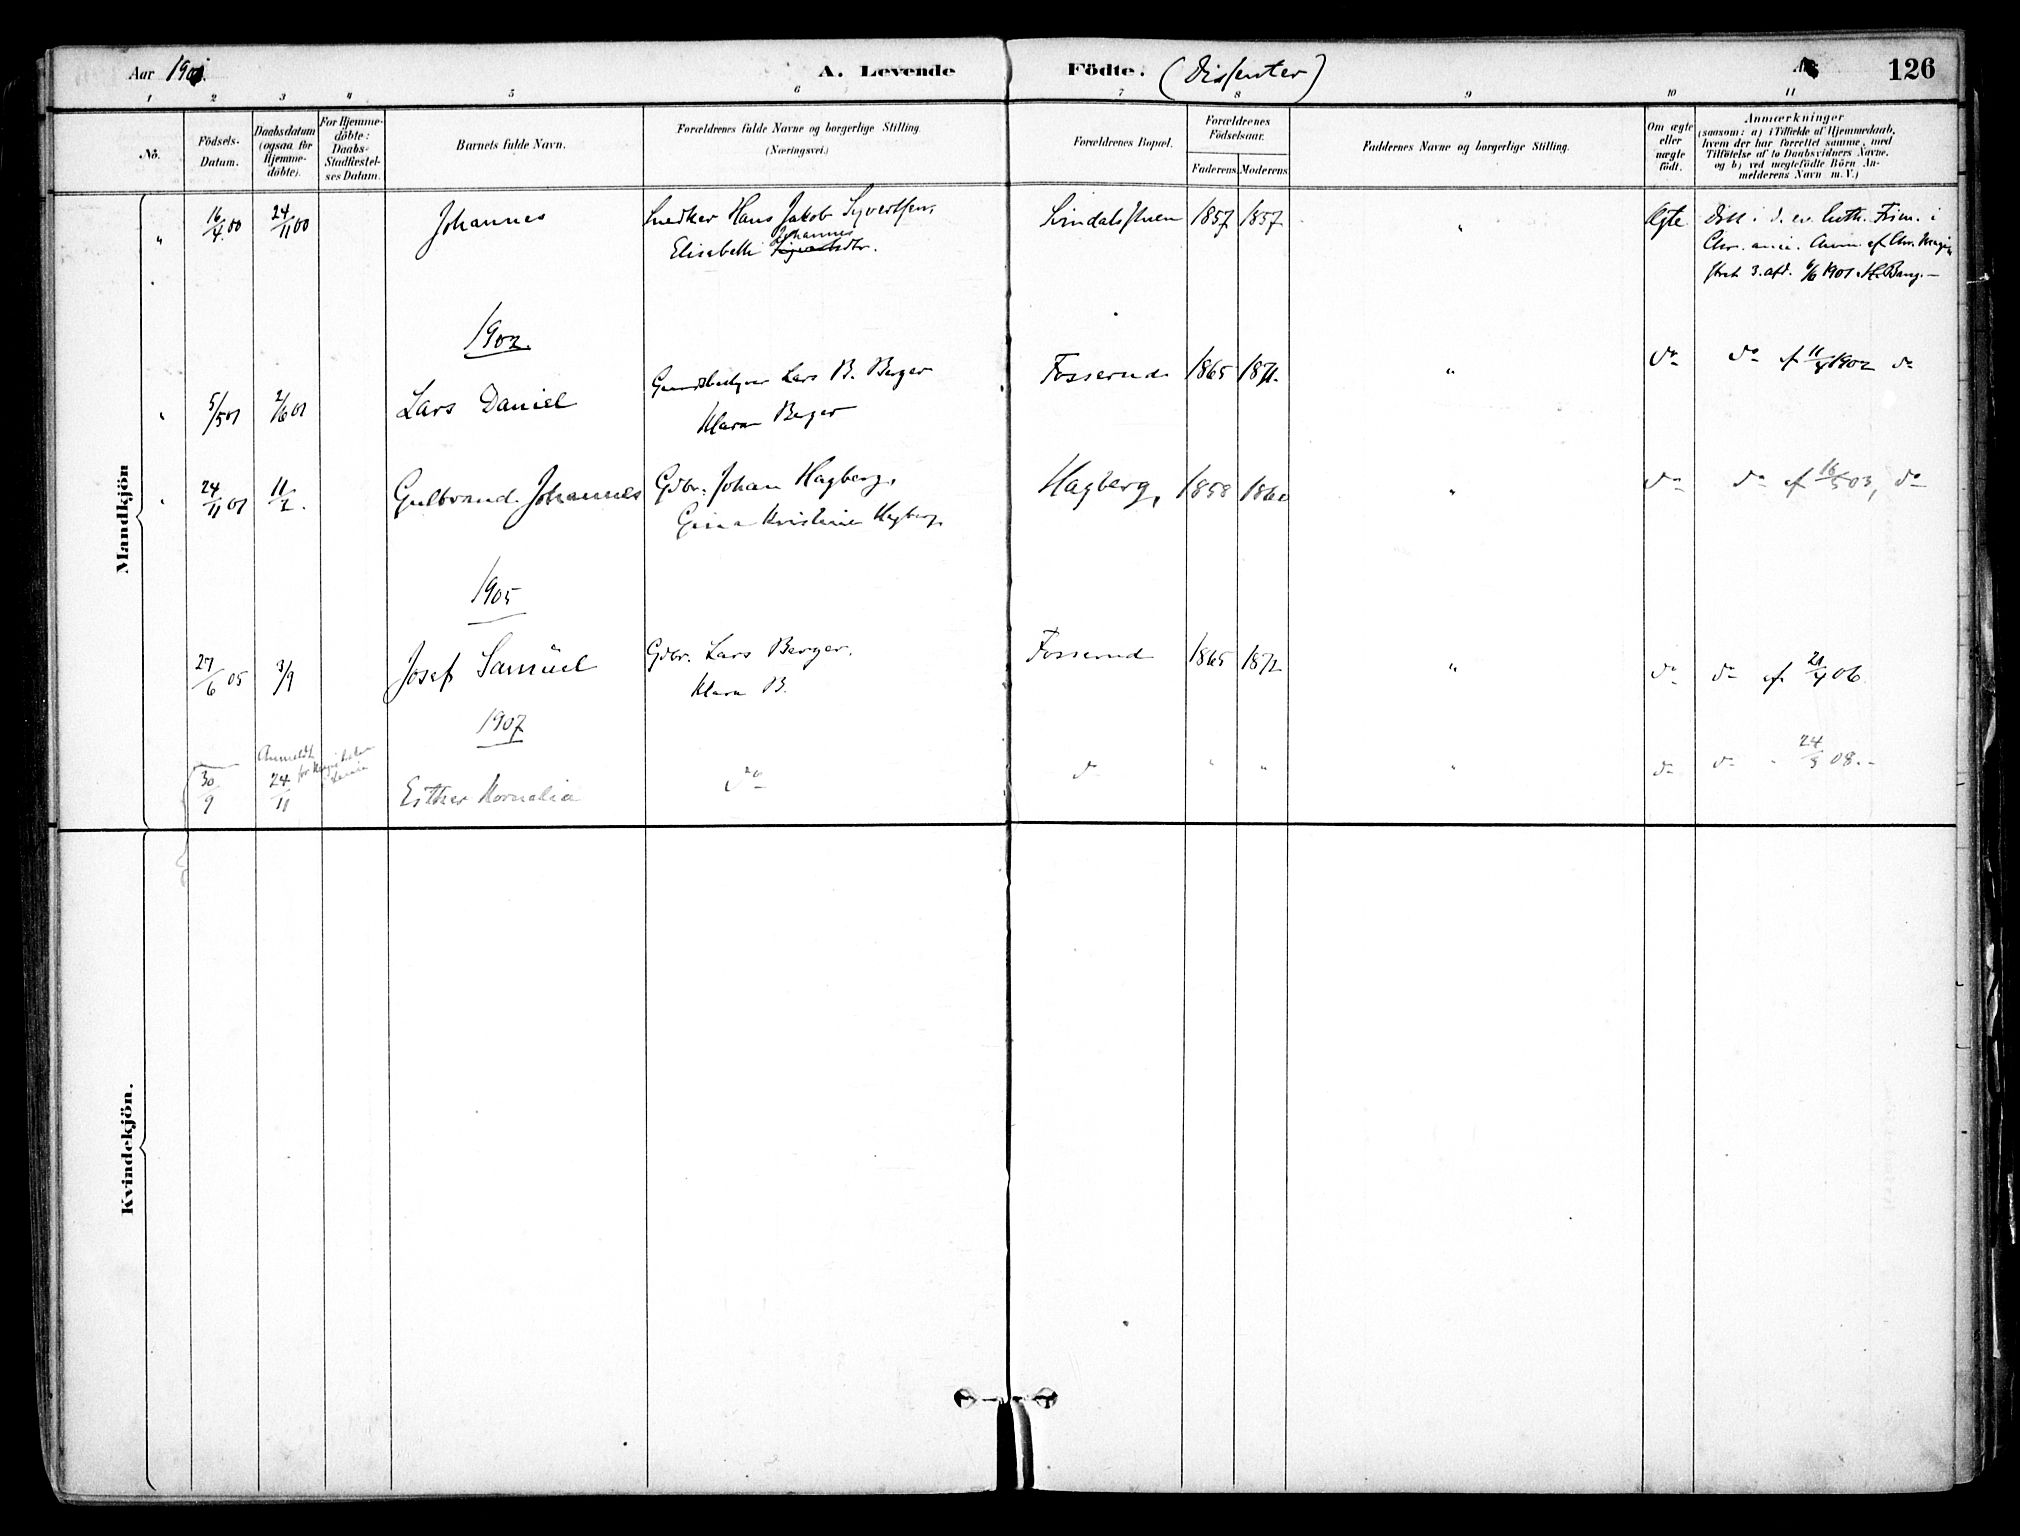 Aar 1901.
A. Levende Födte. (Dissenter)
126
1 2 3 4 5 6 7 8 9 10 11
No.
Födsels-Datum.
Daabsdatum (ogsaa for Hjemme-döbte).
For Hjemme-döbte: Daabs-Stadfæstel-ses Datum.
Barnets fulde Navn.
Forældrenes fulde Navne og borgerlige Stilling. (Næringsvei.)
Forældrenes Bopæl.
Forældrenes Födselsaar.
Faderens Moderens
Faddernes Navne og borgerlige Stilling.
Om ægte eller uægte födt.
Anmærkninger
(saasom: a) i Tilfælde af Hjemmedaab, hvem der har forrettet samme, med Tilföielse af to Daabsvidners Navne, og b) ved uægtefödte Börn An-melderens Navn m. V.)
Mandkjön
" 16/4 00 24/11 00 Johannes Snedker Hans Jakob Syvertsen, 1857 1857 " Ægte
Johannes
Elisabeth
3. afd. 6/6 1901 Bang.
1902.
" 5/5 01 2/6 01 Lars Daniel Lars B. Berger Fosserud 1865 1871. " do do af 11/4 1902 do
Klara Berger
" 24/11 01 11/2. Gulbrand Johannes Gdbr. Johan Hagberg, Hagberg, 1858 1860 " do do af 16/5 03, do
Gina Kristine Hagberg
1905
27/6 05 3/9 Josef Samuel Gdbr. Lars Berger, Fosserud 1865 1872 " do do af 21/4 06.
Klara B.
1907
Anmeldt for
30/9 24/11 Esther Kornelia do do " " " do do " 24/3 08.
Kvindekjön.